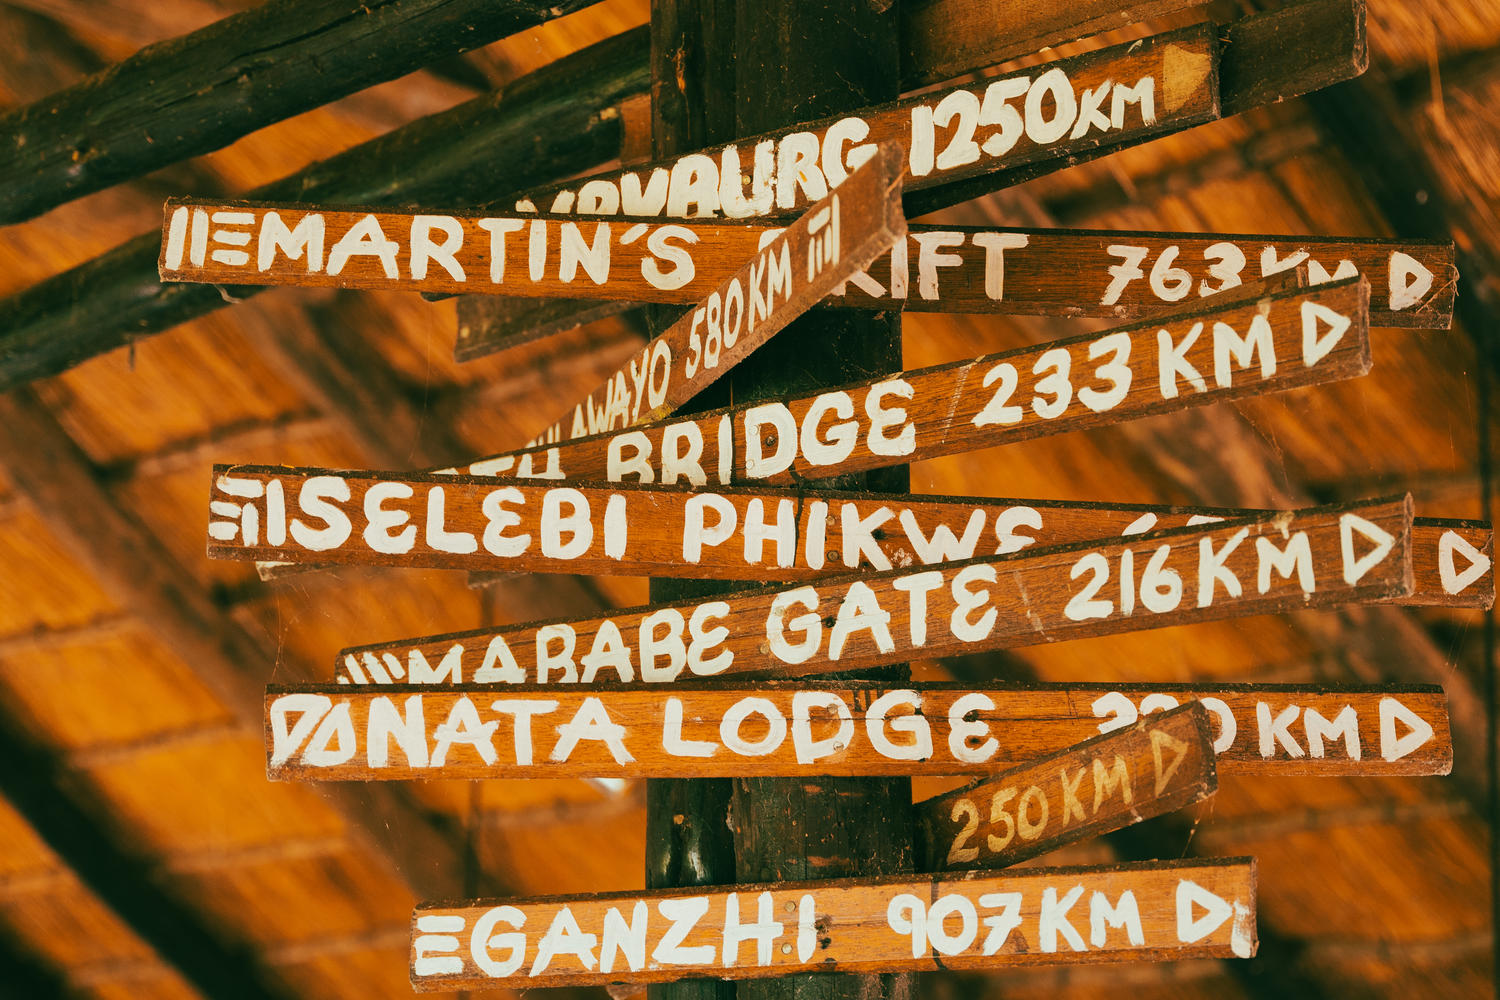 1250KM
MARTIN'S 763KM
580KM
BRIDGE 233 KM
SELEBI PHIKWE
MABABE GATE 216KM
NATA LODGE KM
250KM
GANZHI 907KM